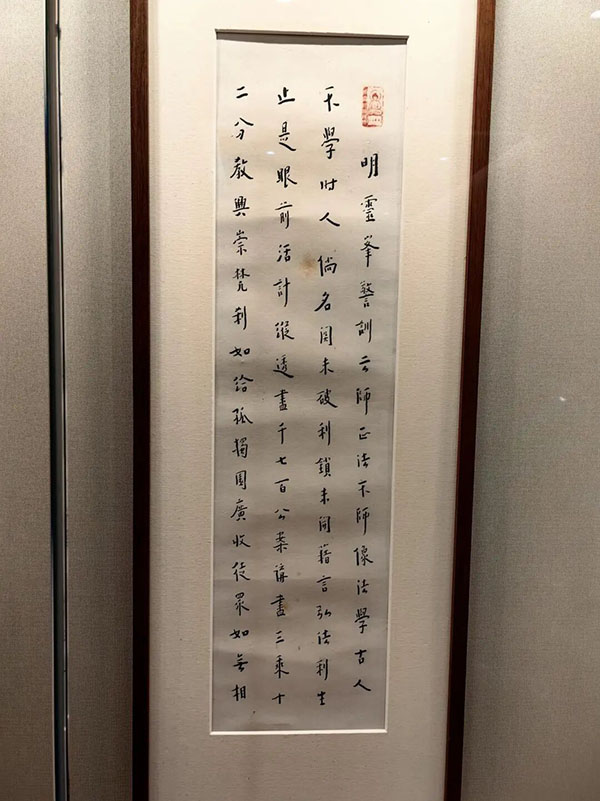 明靈峯警訓云師正法不師像法學古人
不學時人倘名關未破利鎖未開藉言弘法利生
止是眼前活計縱透盡千七百公案講盡三乘十
二分教興崇梵刹如給孤獨園廣收徒眾如無相